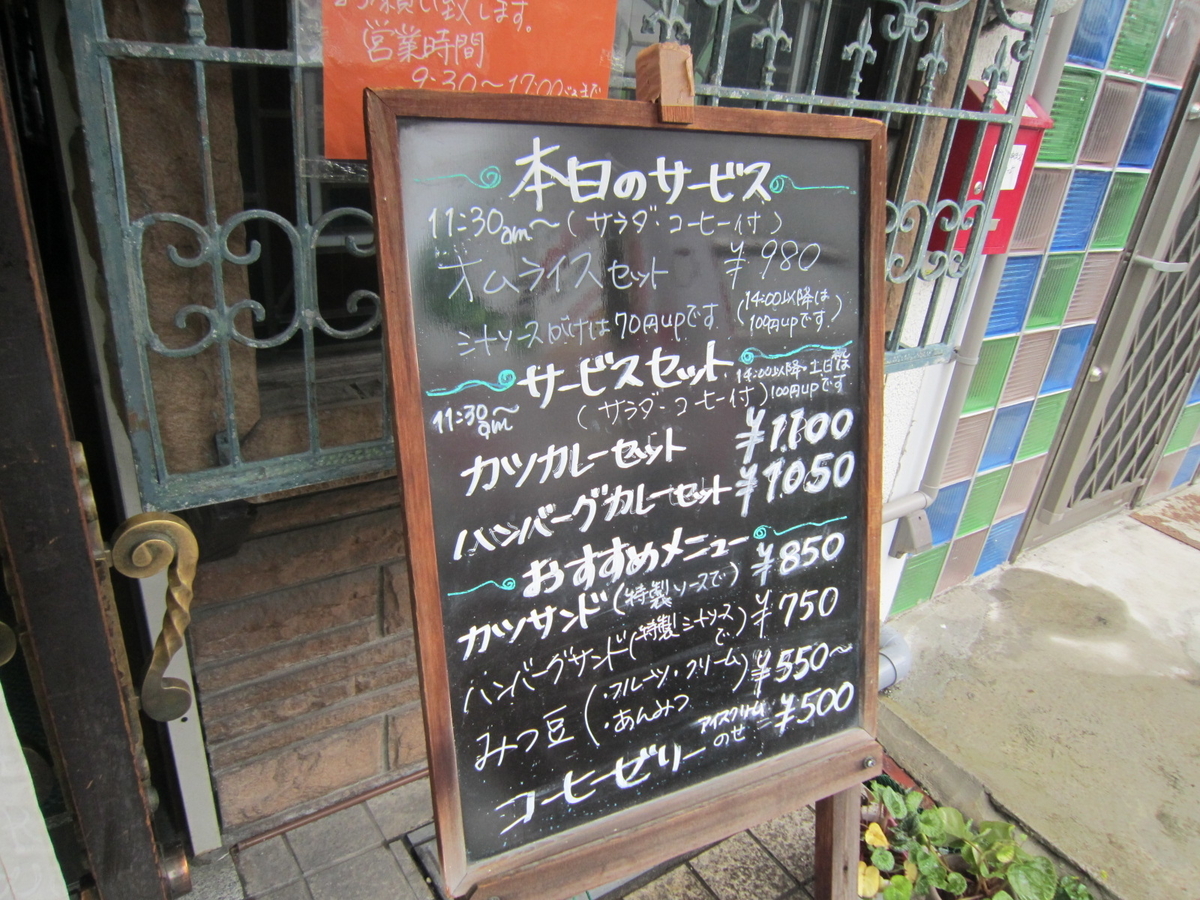 お願い致します。
営業時間
9:30〜17:00
本日のサービス
11:30am〜(サラダ・コーヒー付)
オムライスセット ¥980
ミートソースがけは70円upです (14:00以降は100円upです)
サービスセット
11:30am〜 (サラダ・コーヒー付) 14:00以降・土日祭は100円upです
カツカレーセット ¥1.100
ハンバーグカレーセット ¥1050
おすすめメニュー
カツサンド(特製ソースで) ¥850
ハンバーグサンド(特製ミートソースで) ¥750
みつ豆(・フルーツ・クリーム ・あんみつ) ¥550〜
コーヒーゼリー アイスクリームのせ ¥500